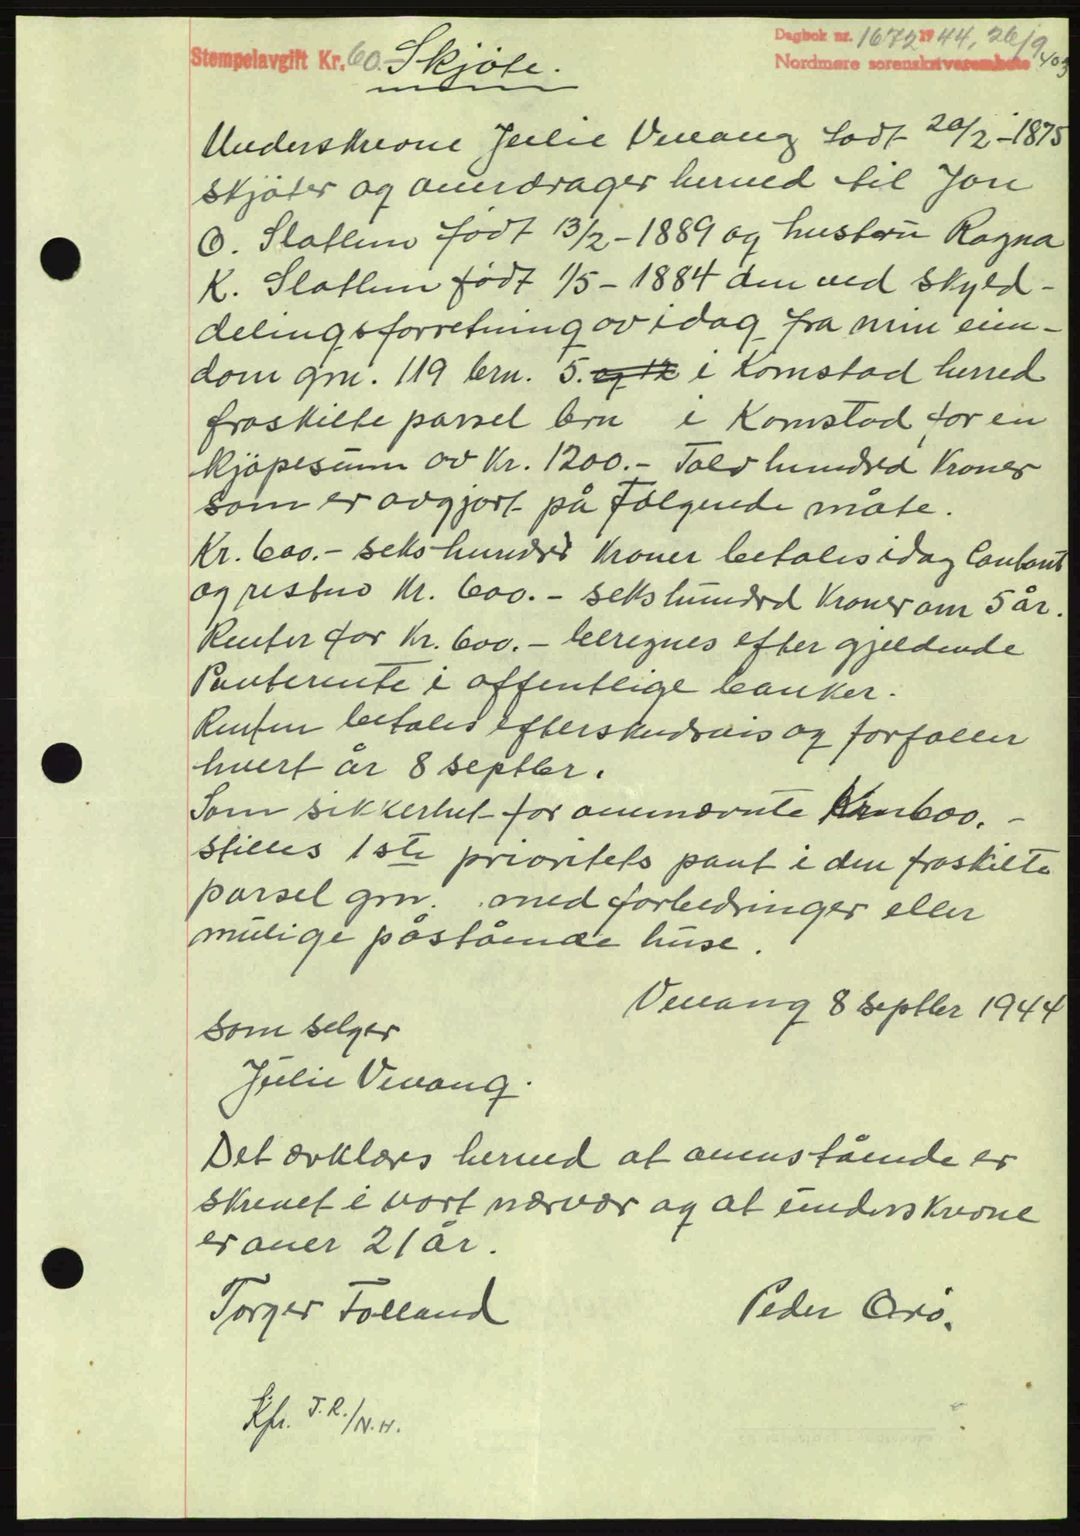 Stempelavgift Kr. 60.- Skjöte.
Dagbok nr. 1672 1944, 26/9
Nordmøre sorenskriverembete 403
Underskrevne Julie Vevang födt 20/2-1875
skjöter og overdrager herved til Jon
O. Slatlem födt 13/2-1889 og hustru Ragna
K. Slatlem födt 1/5-1884 den ved skyld-
delingsforretning av idag fra min eien-
dom grn. 119 brn. 5. og 12 i Kornstad herred
fraskilte parsel brn i Kornstad for en
kjöpesum av Kr. 1200.- Tolv hundred kroner
som er avgjort på fölgende måte.
Kr. 600.- sekshundred kroner betales idag contant
og resten Kr. 600.- sekshundred kroner om 5 år.
Renter for Kr. 600.- beregnes efter gjeldende
Panterente i offentlige banker.
Renten betales efterskudsvis og forfaller
hvert år 8 septbr.
Som sikkerhet for ovennevnte Kr 600.-
stilles 1ste prioritets pant i den fraskilte
parsel grn. med forbedringer eller
mulige påstående huse.
Vevang 8 septbr 1944
som selger
Julie Vevang.
Det ærklæres herved at ovenstående er
skrevet i vort nærvær og at underskrevne
er over 21 år.
Torger Folland Peder Orö.
Kfr. J.R./N.H.